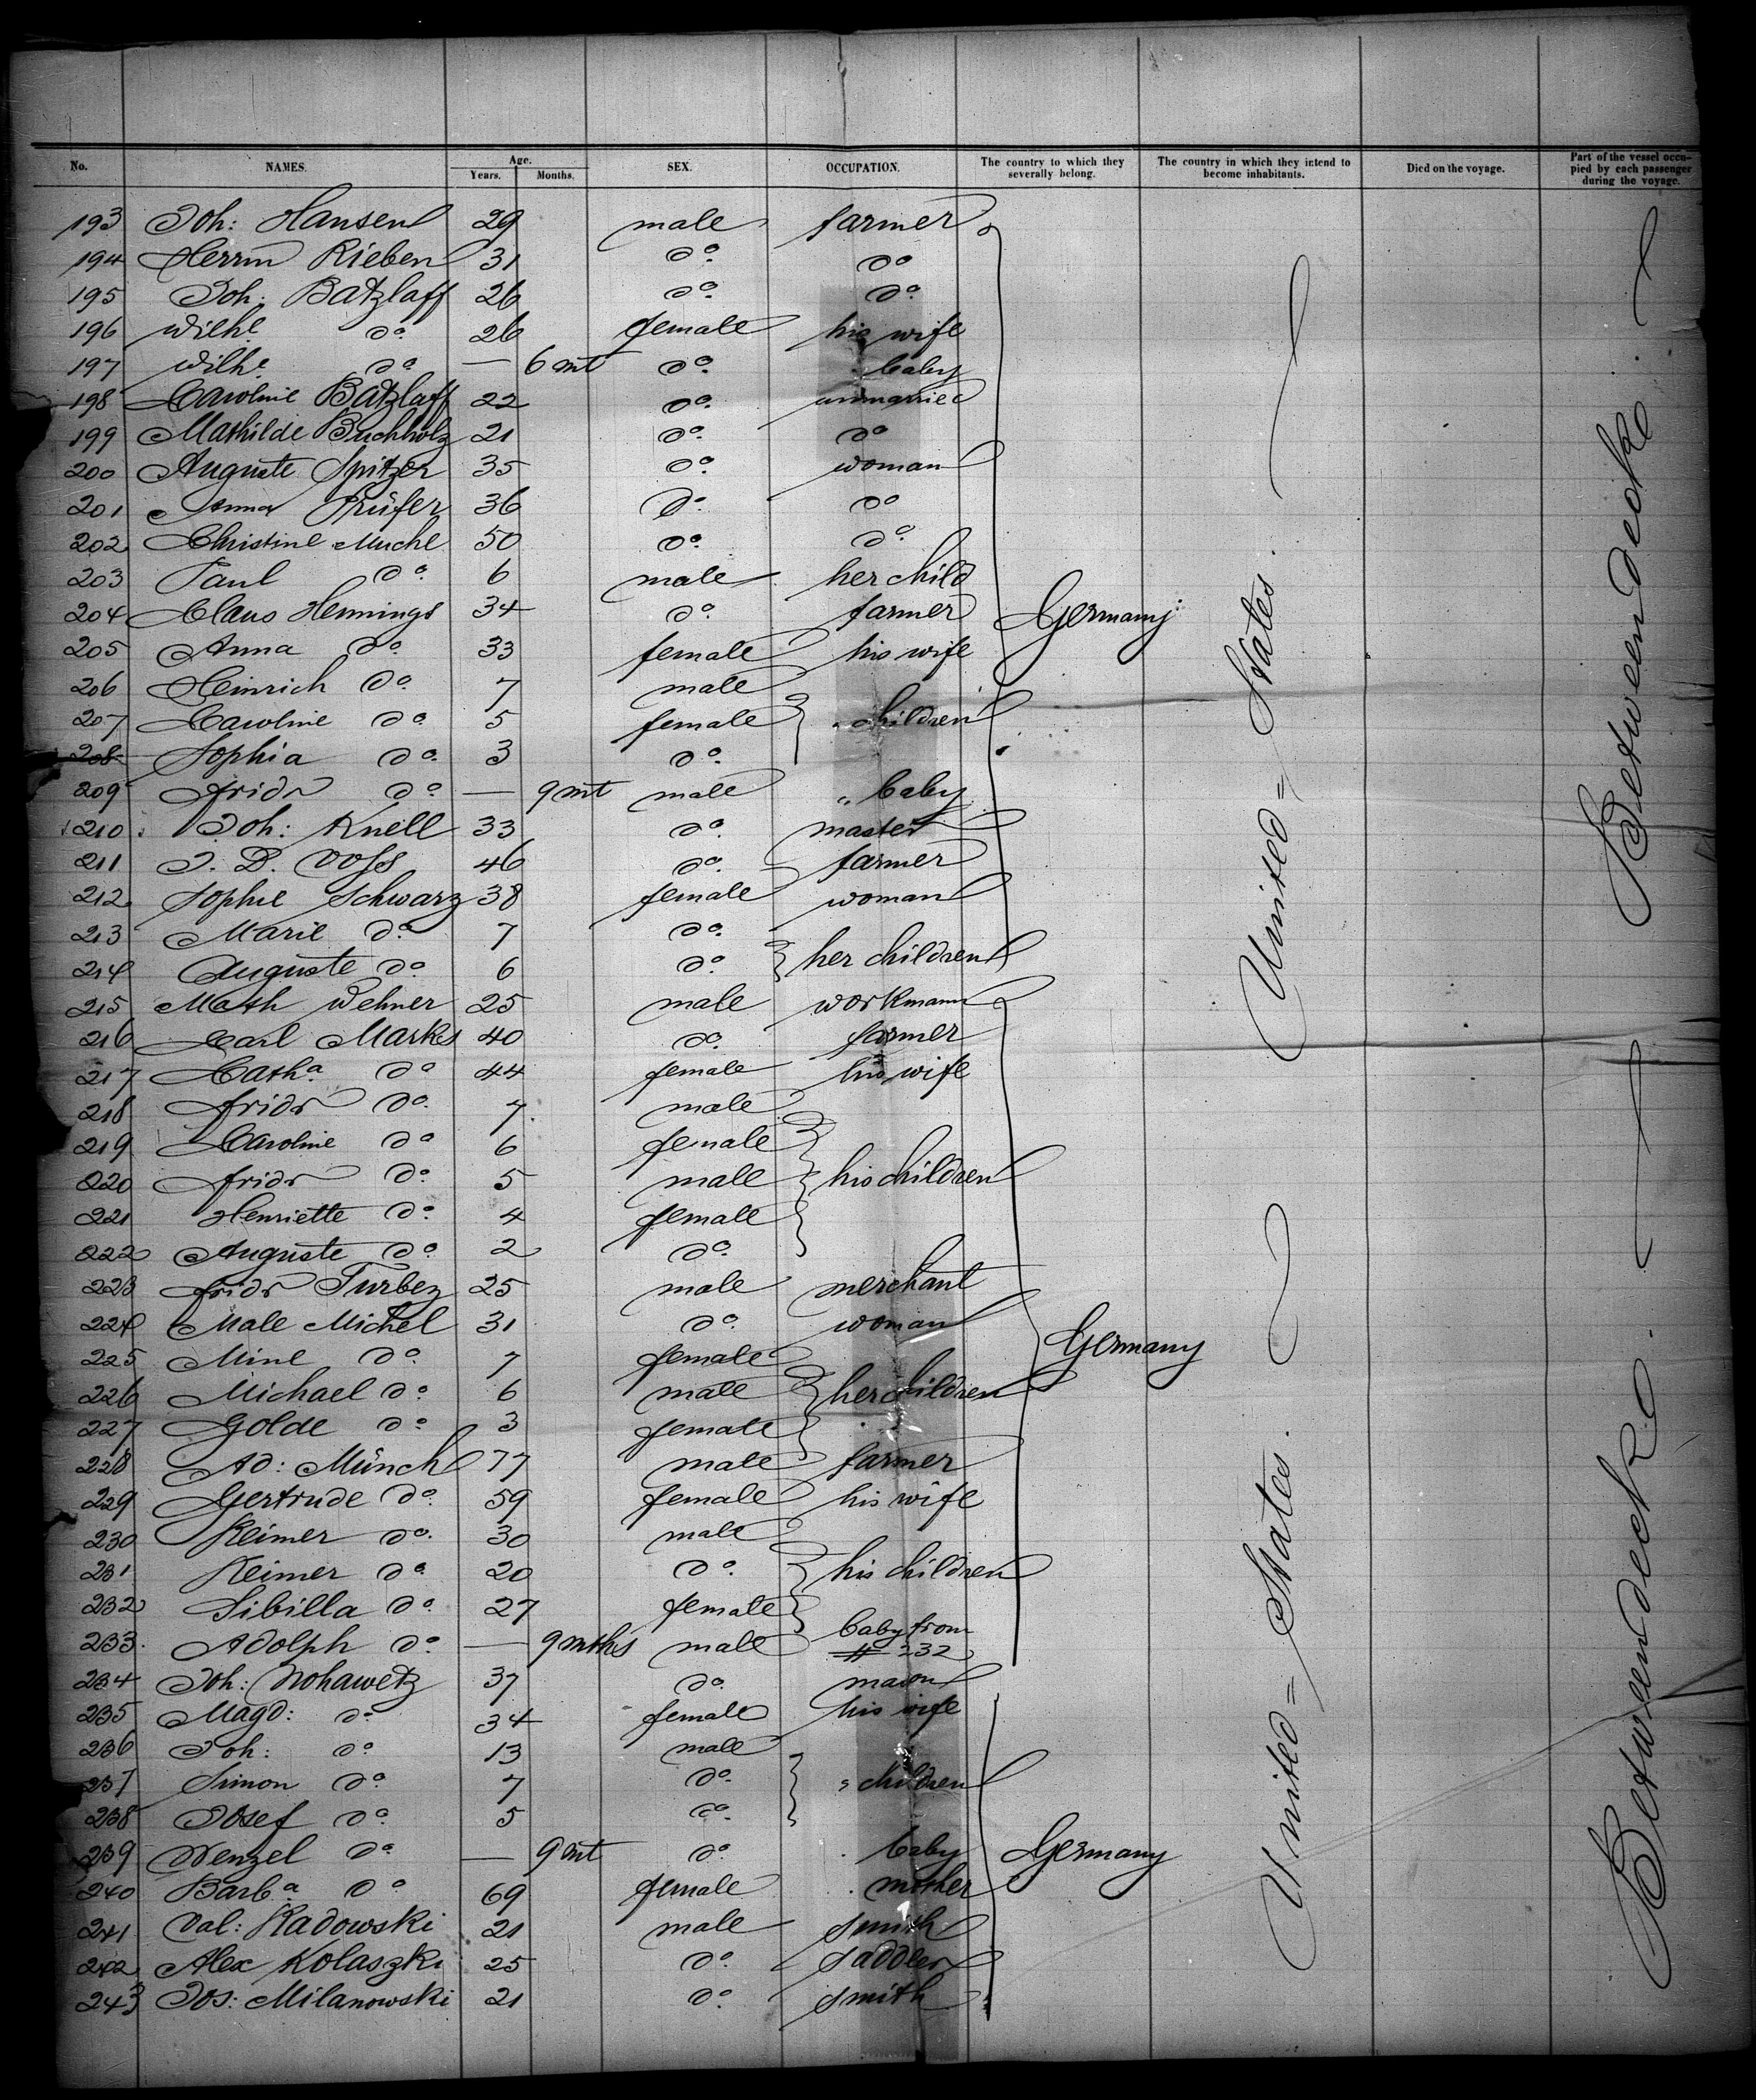 No. NAMES. Age. Years. Months. SEX. OCCUPATION. The country to which they severally belong. The country in which they intend to become inhabitants. Died on the voyage. Part of the vessel occupied by each passenger during the voyage.
193 Joh: Hansen 29 male farmer
194 Herrm Rieben 31 do. do
195 Joh: Batzlaff 26 do. do.
196 Wilhe do. 26 female his wife
197 Wilhe do — 6 mt do. baby
198 Caroline Batzlaff 22 do. unmarried
199 Mathilde Buchholz 21 do. do
200 Auguste Spitzer 35 do. woman
201 Anna Prüfer 36 do. do
202 Christine Muchl 50 do. do.
203 Paul do. 6 male her child
204 Claus Hennings 34 do. farmer Germany
205 Anna do. 33 female his wife
206 Heinrich do. 7 male
207 Caroline do 5 female " children
208 Sophia do. 3 do.
209 Fridr do — 9 mt male " baby
210 Joh: Knell 33 do. master
211 J. D. Voss 46 do. farmer
212 Sophie Schwarz 38 female woman
213 Marie do. 7 do.
214 Auguste do. 6 do. her children
215 Math Wehner 25 male workmann
216 Carl Markes 40 do. farmer
217 Catha do 44 female his wife
218 Fridr do. 7 male
219 Caroline do 6 female
220 Fridr do. 5 male his children
221 Henriette do. 4 female
222 Auguste do 2 do.
223 Fridr Turbez 25 male merchant
224 Male Michel 31 do. woman
225 Mine do. 7 female Germany
226 Michael do. 6 male her children
227 Golde do 3 female
228 Ad: Münch 77 male farmer
229 Gertrude do. 59 female his wife
230 Reimer do. 30 male
231 Reimer do. 20 do. his children
232 Sibilla do. 27 female
233. Adolph do — 9 mths male baby from # 232
234 Joh: Nohawetz 37 do. mason
235 Magd: do 34 female his wife
236 Joh: do 13 male
237 Simon do 7 do. " children
238 Josef do. 5 do.
239 Wenzel do — 9 mt do. baby Germany
240 Barba do 69 female mother
241 Val: Radowski 21 male smith
242 Alex Kolaszki 25 do. saddler
243 Jos: Milanowski 21 do. smith
United = States.
United = States.
Between decke.
Between decke.